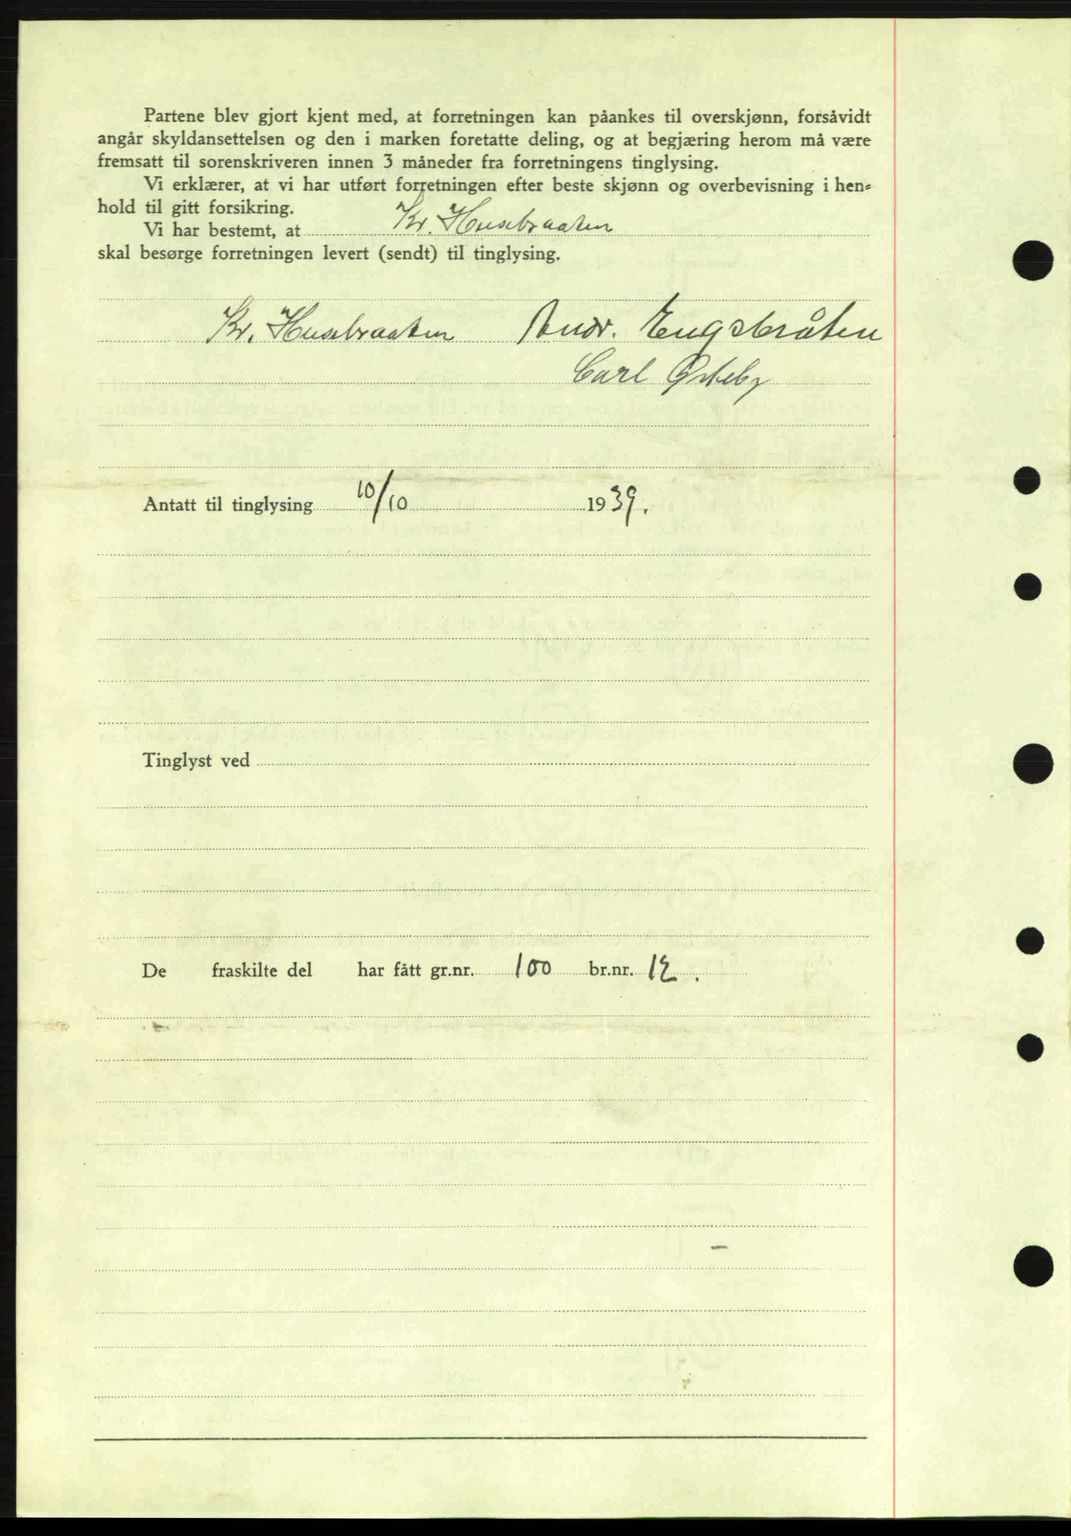 Partene blev gjort kjent med, at forretningen kan påankes til overskjønn, forsåvidt
angår skyldansettelsen og den i marken foretatte deling, og at begjæring herom må være
fremsatt til sorenskriveren innen 3 måneder fra forretningens tinglysing.
Vi erklærer, at vi har utført forretningen efter beste skjønn og overbevisning i hen-
hold til gitt forsikring.
Vi har bestemt, at Kr. Husebraaten
skal besørge forretningen levert (sendt) til tinglysing.
Kr. Husebraaten Andr. Engsbråten
Carl Østeby
Antatt til tinglysing 10/10 1939.
Tinglyst ved
De fraskilte del har fått gr.nr. 100 br.nr. 12.